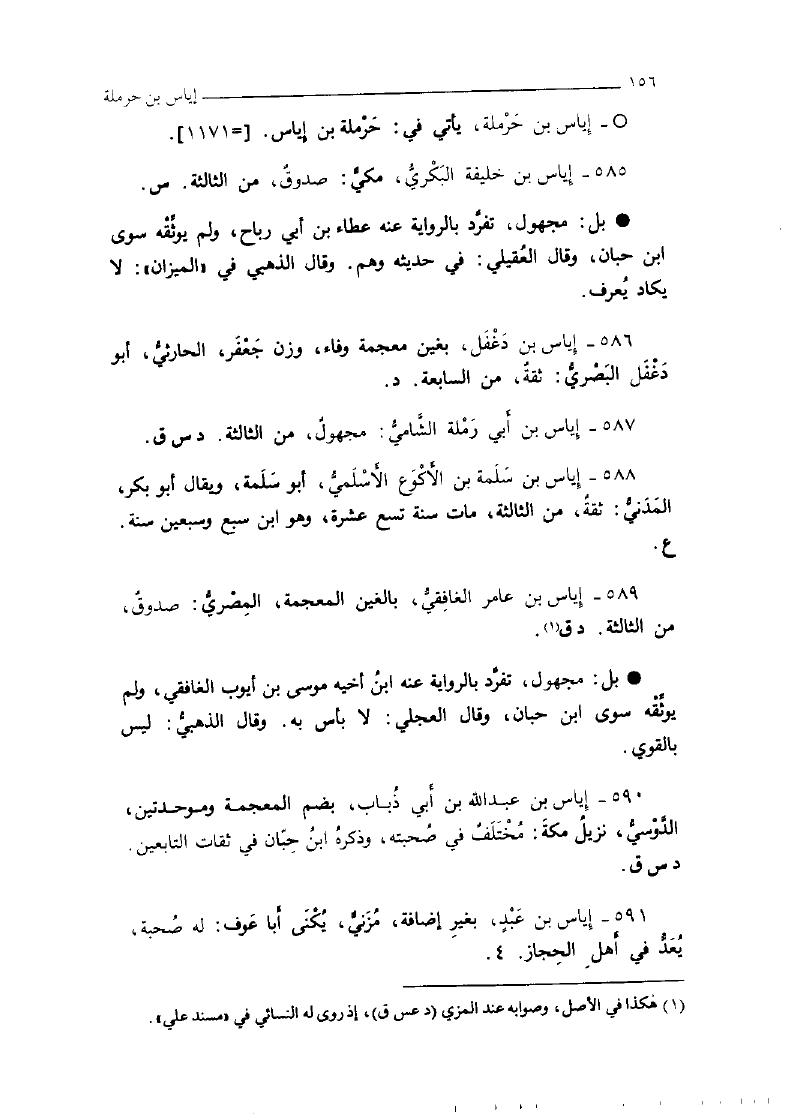 ١٥٦ إياس بن حرملة
○ ـ إياس بن حَرْملة، يأتي في: حَرْملة بن إياس. [=١١٧١].
٥٨٥ ـ إياس بن خليفة البَكْريُّ، مكيٌّ: صدوقٌ، من الثالثة. س.
● بل: مجهول، تفرَّد بالرواية عنه عطاء بن أبي رباح، ولم يوثِّقه سوى
ابن حبان، وقال العُقيلي: في حديثه وهم. وقال الذهبي في «الميزان»: لا
يكاد يُعرف.
٥٨٦ ـ إياس بن دَغْفَل، بغين معجمة وفاء، وزن جَعْفَر، الحارثيُّ، أبو
دَغْفَل البَصْريُّ: ثقةٌ، من السابعة. د.
٥٨٧ ـ إياس بن أَبي رَمْلة الشَّاميُّ: مجهولٌ، من الثالثة. د س ق.
٥٨٨ ـ إياس بن سَلَمة بن الأَكْوَع الأَسْلَميُّ، أبو سَلَمة، ويقال أبو بكر،
المَدَنيُّ: ثقةٌ، من الثالثة، مات سنة تسع عشرة، وهو ابن سبع وسبعين سنة.
ع.
٥٨٩ ـ إياس بن عامر الغافِقيُّ، بالغين المعجمة، المِصْريُّ: صدوقٌ،
من الثالثة. د ق(١).
● بل: مجهول، تفرَّد بالرواية عنه ابنُ أخيه موسى بن أيوب الغافقي، ولم
يوثِّقْه سوى ابن حبان، وقال العجلي: لا بأس به. وقال الذهبيُّ: ليس
بالقوي.
٥٩٠ ـ إياس بن عبدالله بن أَبي ذُباب، بضم المعجمة وموحدتين،
الدَّوْسيُّ، نزيلُ مكةَ: مُخْتَلَفٌ في صُحبته، وذكرهُ ابنُ حِبّان في ثقات التابعين.
د س ق.
٥٩١ ـ إياس بن عَبْدٍ، بغيرِ إضافة، مُزَنيٌّ، يُكْنَى أَبا عَوف: له صُحبة،
يُعَدُّ في أَهلِ الحِجاز. ٤.
(١) هكذا في الأصل، وصوابه عند المزي (د عس ق)، إذ روى له النسائي في «مسند علي».